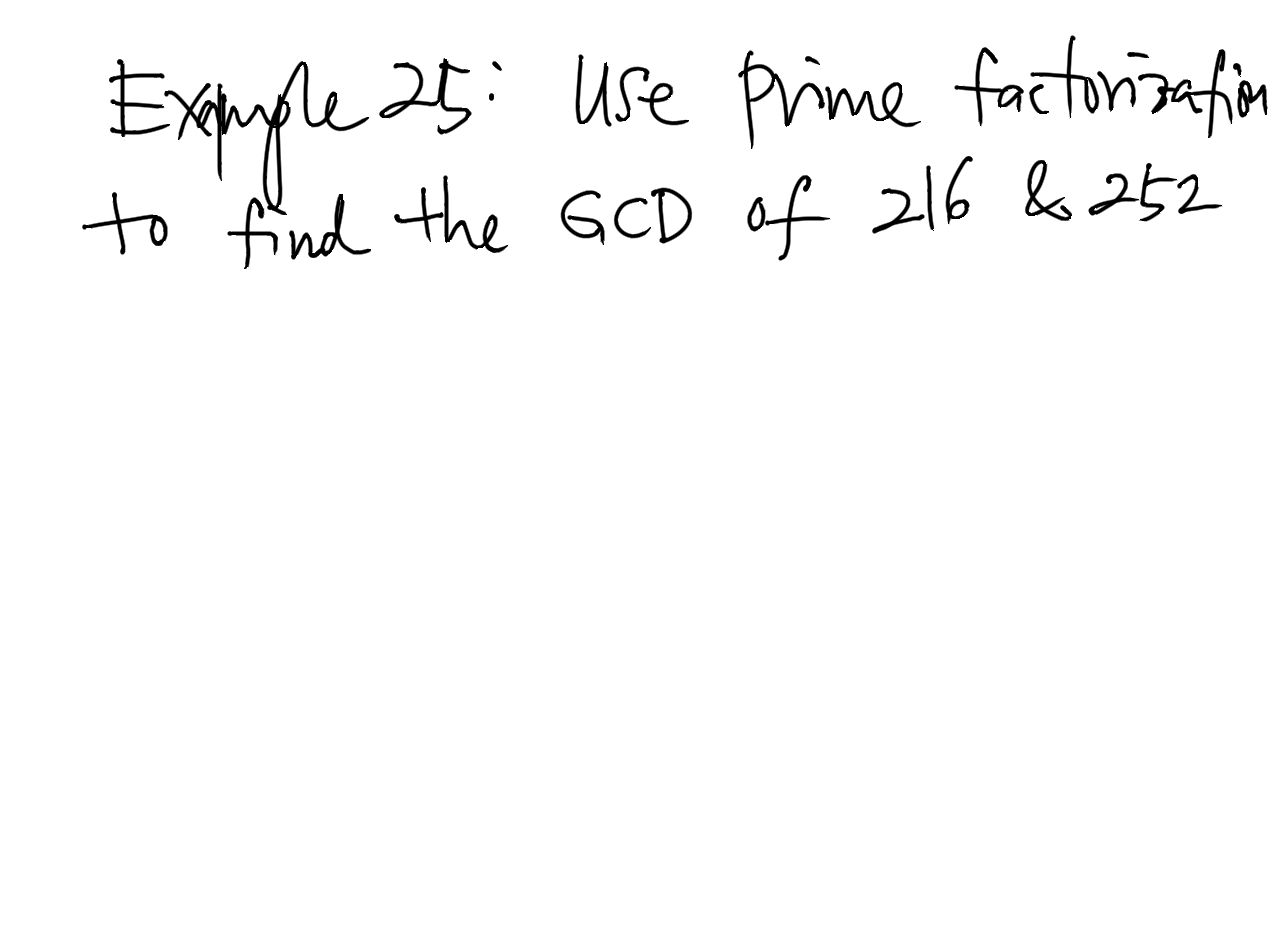 Example 25: Use prime factorization
to find the GCD of 216 & 252